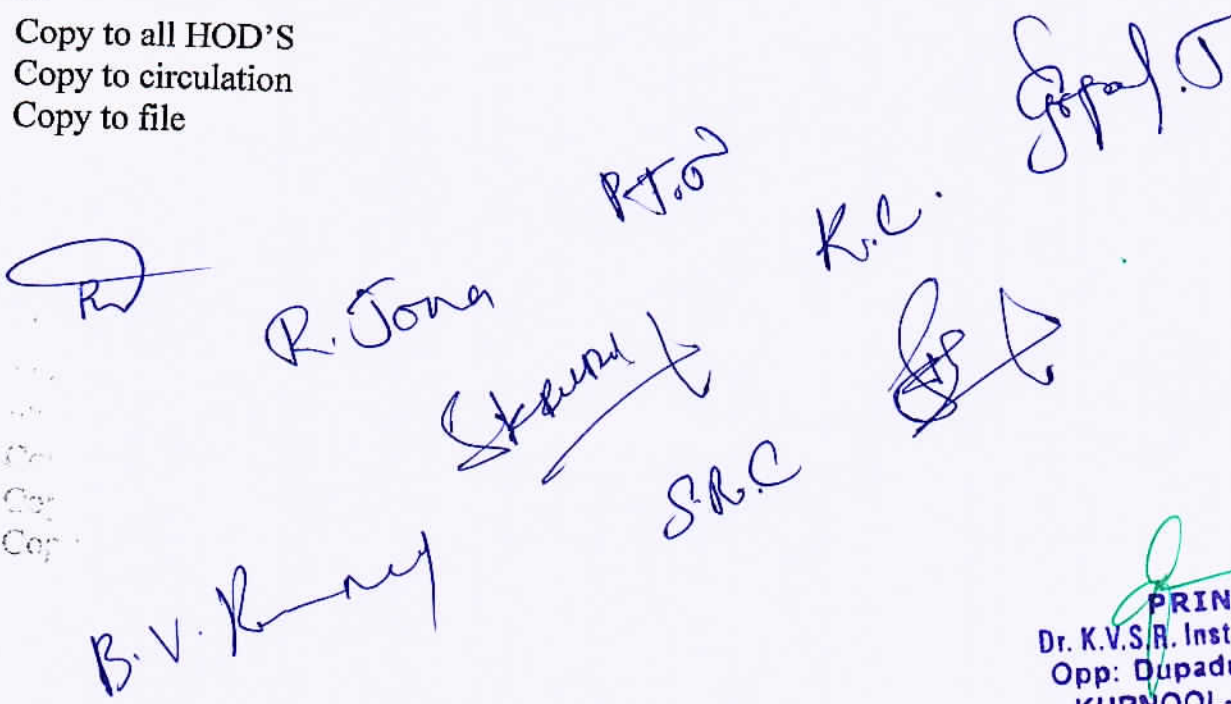 Copy to all HOD'S
Copy to circulation
Copy to file
Gopal.J
P.J.O
K.C.
R. Jona
S.R.C
B.V.
PRIN
Dr. K.V.S.R. Inst
Opp: Dupadu
KURNOOL